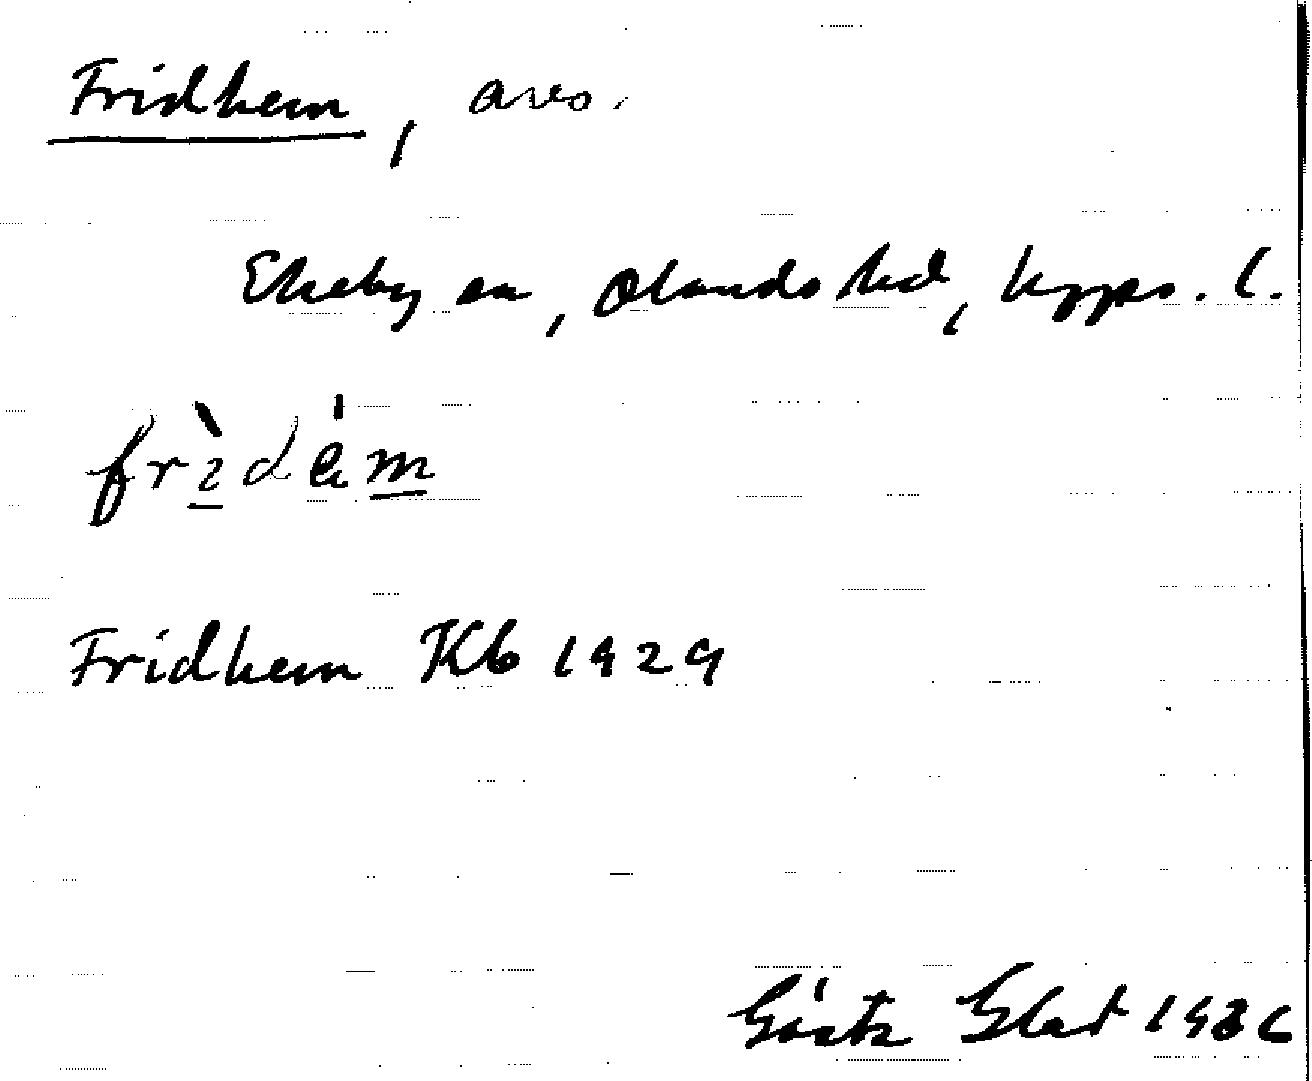 Fridhem, avs.
Ekeby sn, Olands hd, Upps. l.
frìdém
Fridhem Kb 1929
Gösta Glad 1936